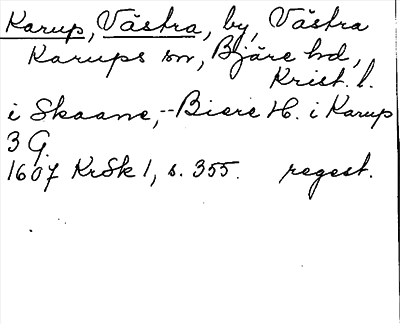 Karup, Västra, by, Västra
Karups sn, Bjäre hd,
Krist. l.
i Skaane, -- Biere H. i Karup
3 G.
1607 KrSk 1, s. 355. regest.